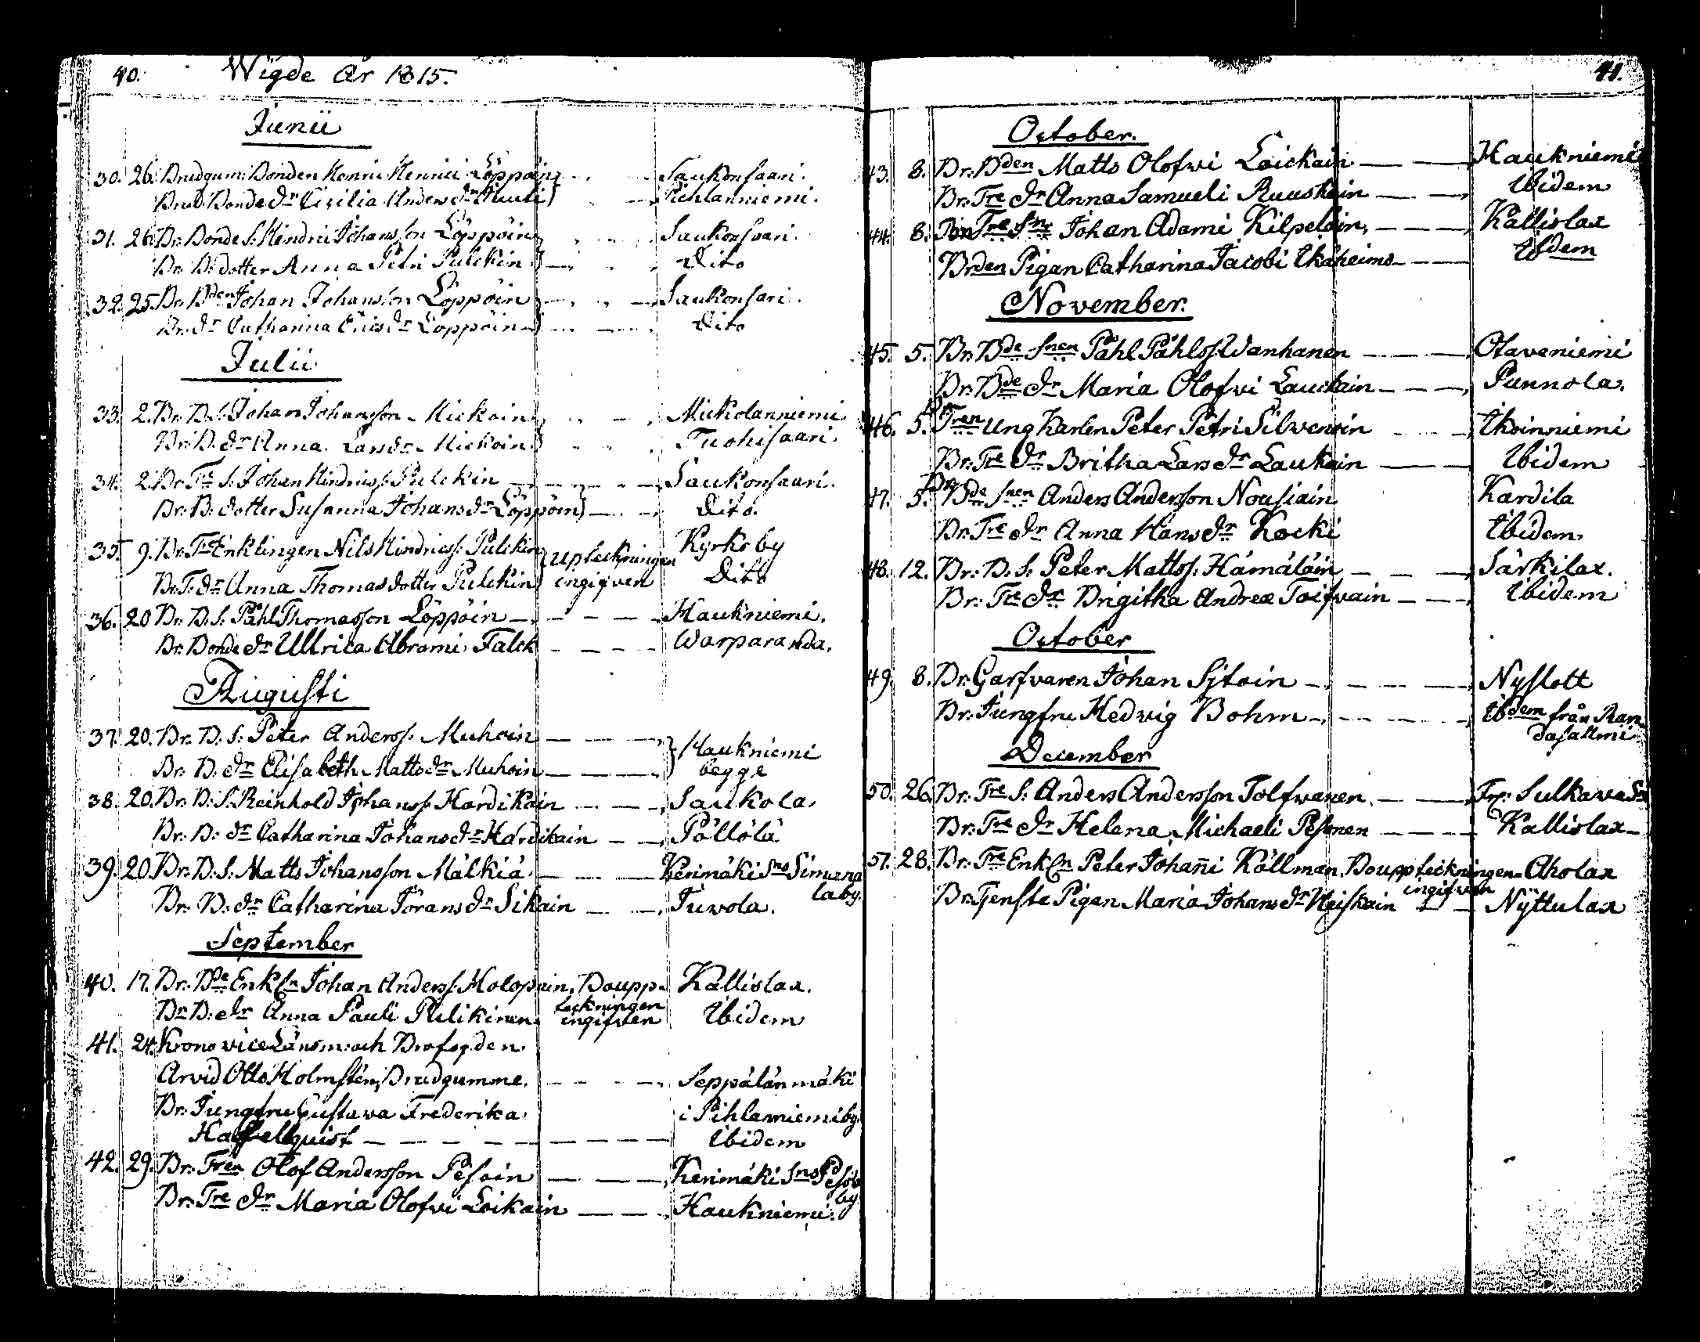 40. Wigde År 1815.
Junii
30. 26. Brudgum: Bonden Henric Henrici Löppöin Saukonsaari.
Brud Bonde dr Cicilia Anders dr Pihlanniemi.
31. 26. Br. Bonde S. Hindric Johansson Löppöin Saukonsaari.
Br. B: dotter Anna Petri Pulckin Dito
32. 25. Br. Bden Johan Johansson Löppöin Saukonsari.
Br. dr Catharina Erics dr Löppöin Dito
Julii
33. 2. Br. B. S. Johan Johansson Mickoin Mickolanniemi
Br. B. dr Anna Lars dr Mickoin Tuohisaari.
34. 2. Br. Te S. Johan Hindrics S. Pulckin Saukonsaari.
Br. B. dotter Susanna Johans dr Löppöin Dito.
35. 9. Br. Tre Enklingen Nils Hindricss. Pulckin Upteckningen Kyrkoby
Br. T. dr Anna Thomas dotter Pulckin ingifven Dito
36. 20 Br. B. S. Påhl Thomasson Löppöin Haukniemi.
Br. Bonde dr Ullrica Abrami Falck Warparanda.
Augusti
37. 20. Br. B. S. Peter Anderss. Muhoin Haukniemi
Br. B. dr Elisabeth Matts dr Muhoin begge
38. 20. Br. B. S. Reinhold Johanss. Hardikain Saukola.
Br. B. dr Catharina Johans dr Hardikain Pöllölä
39. 20. Br. B. S. Matts Johansson Mälkiä Kerimäki Sns Simuna
laby.
Br. B. dr Catharina Görans dr Sikain Juvola.
September
40. 17. Br. Bde Enkln Johan Anderss. Holopain, Boupp- Kallislax.
Br. B. dr Anna Pauli Pulikinen teckningen ingifven Ibidem
41. 24. Krono vice Länsm: och Brofogden
Arvid Otto Holmstén, Brudgumme. Seppälänmäki
Br. Jungfru Gustava Frederika i Pihlaniemi by.
Hasselquist Ibidem
42. 29. Br. Tren Olof Andersson Pesoin Kerimäki Sns
by
Br. Tre dr Maria Olofvi Loikain Haukniemi.
41.
October.
43. 8. Br. Bden Matts Olofvi Loickain Haukniemi
Br. Tre dr Anna Samueli Ruuskain Ibidem
44. 8. Tre Snr Johan Adami Kilpeläin Kallislax
Brden Pigan Catharina Jacobi Ikäheimo Ibdem
November.
45. 5. Br. Bde Snen Påhl Påhls S. Wanhanen Otavaniemi
Br. Bde dr Maria Olofvi Lauckain Punnola.
46. 5. Br. Tren Ung Karlen Peter Petri Silvenoin Ikoinniemi
Br. Tre dr Britha Lars dr Laukain Ibidem
47. 5. Br. Bde Snen Anders Andersson Nousiain Kardila
Br. Tre dr Anna Hans dr Kocki Ibidem.
48. 12. Br. B. S. Peter Mattss. Hämäläin Särkilax.
Br. Tre dr Brigitha Andreæ Toifvain Ibidem
October
49. 8. Br. Garfvaren Johan Sjtoin Nyslott
Br. Jungfru Hedvig Bohm Ibdem från Ran
dasallmi
December
50. 26. Br. Tre S. Anders Andersson Tolfvanen Fr: Sulkava Sn
Br. Tre dr Helena Michaeli Pesonen Kallislax
51. 28. Br. Tre Enkln Peter Johañi Källman, Bouppteckningen Aholax
ingifven
Br. Tjenste Pigan Maria Johans dr Heiskain Nyttulax